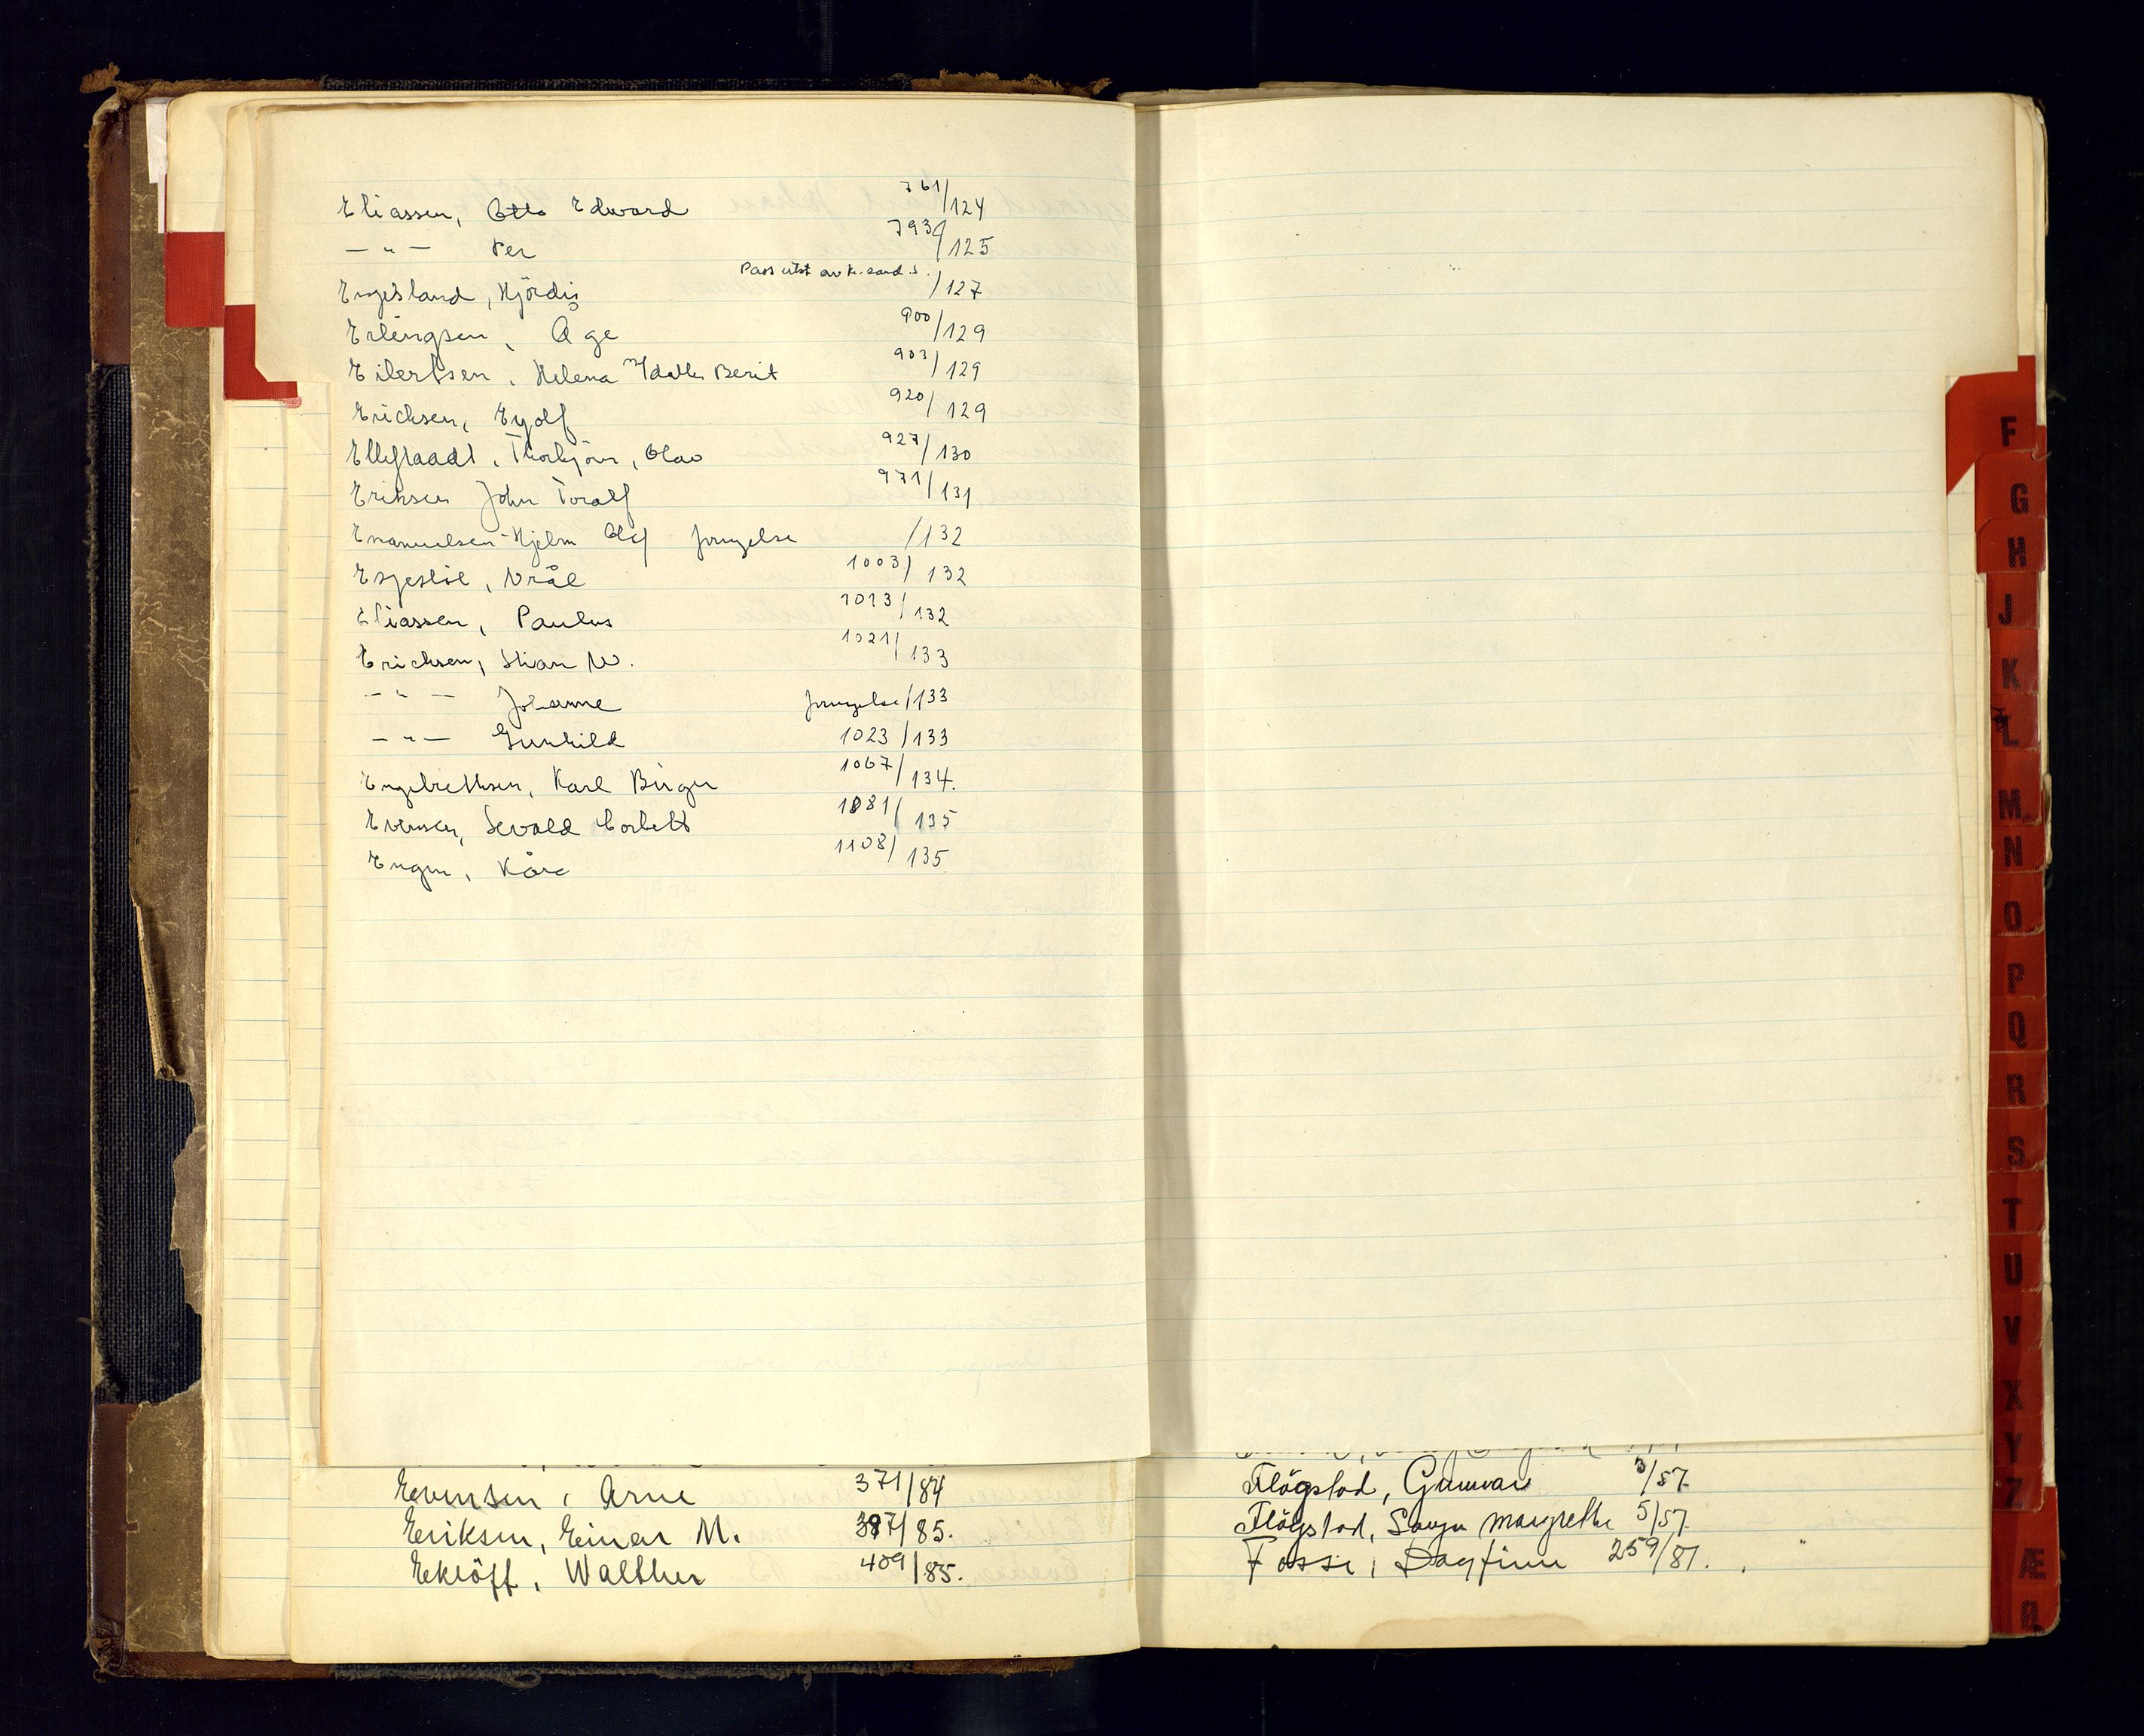 Eliassen, Otto Edward 761/124
— " — Per 793/125
Engesland, Hjördis Pass utst av Kr.sand S. /127
Erlingsen, Age 900/129
Eilertsen, Helena Berit 903/129
Erichsen, Eyolf 920/129
Ellefstaadt, Thorbjörn, Olav 927/130
Eriksen John Toralf 971/131
Emanuelsen-Hjelm Olaf fornyelse /132
Espeslid, Vrål 1003/132
Eliassen, Paulus 1013/132
Erichsen, Stian W. 1021/133
— " — Johanne fornyelse/133
— " — Gunhild 1023/133
Engebrethsen, Karl Birger 1067/134.
Evensen, Sevald Corbett 1081/135
Enger, Kåre 1108/135.
Evensen, Arne 371/84
Eriksen, Einar M. 397/85.
Eklöff, Walther 409/85.
Flögstad, Gunnar 3/57.
Flögstad, Margrethe 5/57.
Fosse, Dagfinn 259/81.
F
G
H
J
K
L
M
N
O
P
Q
R
S
T
U
V
X
Y
Z
Æ
Ø